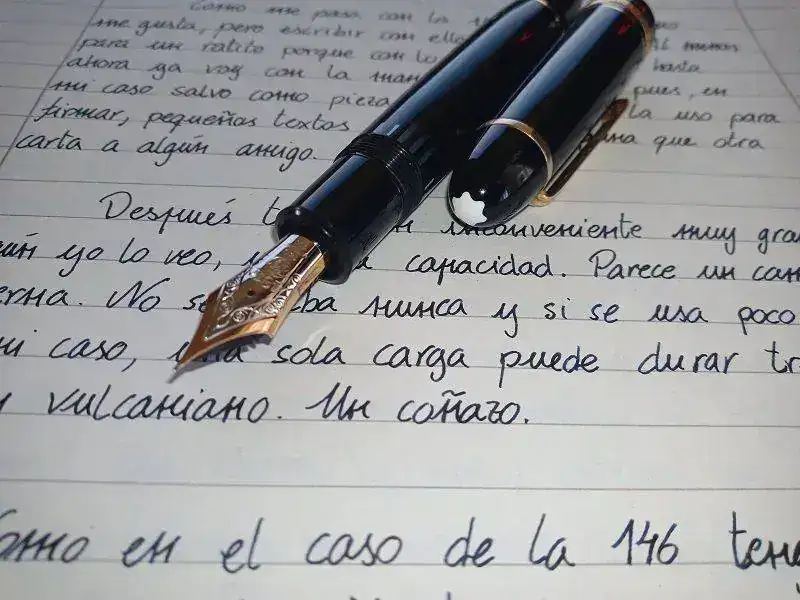 Como me pasa con la
me gusta, pero escribir con ella
para un ratito porque con lo Al menos
ahora ya voy con la man hasta
mi caso salvo como pieza pues, en
firmar, pequeños textos la uso para
carta a algún amigo. una que otra
Después t inconveniente muy gra
ún yo lo veo, capacidad. Parece un can
erna. No se ba nunca y si se usa poco
i caso, una sola carga puede durar tr
vulcaniano. Un coñazo.
Como en el caso de la 146 ten